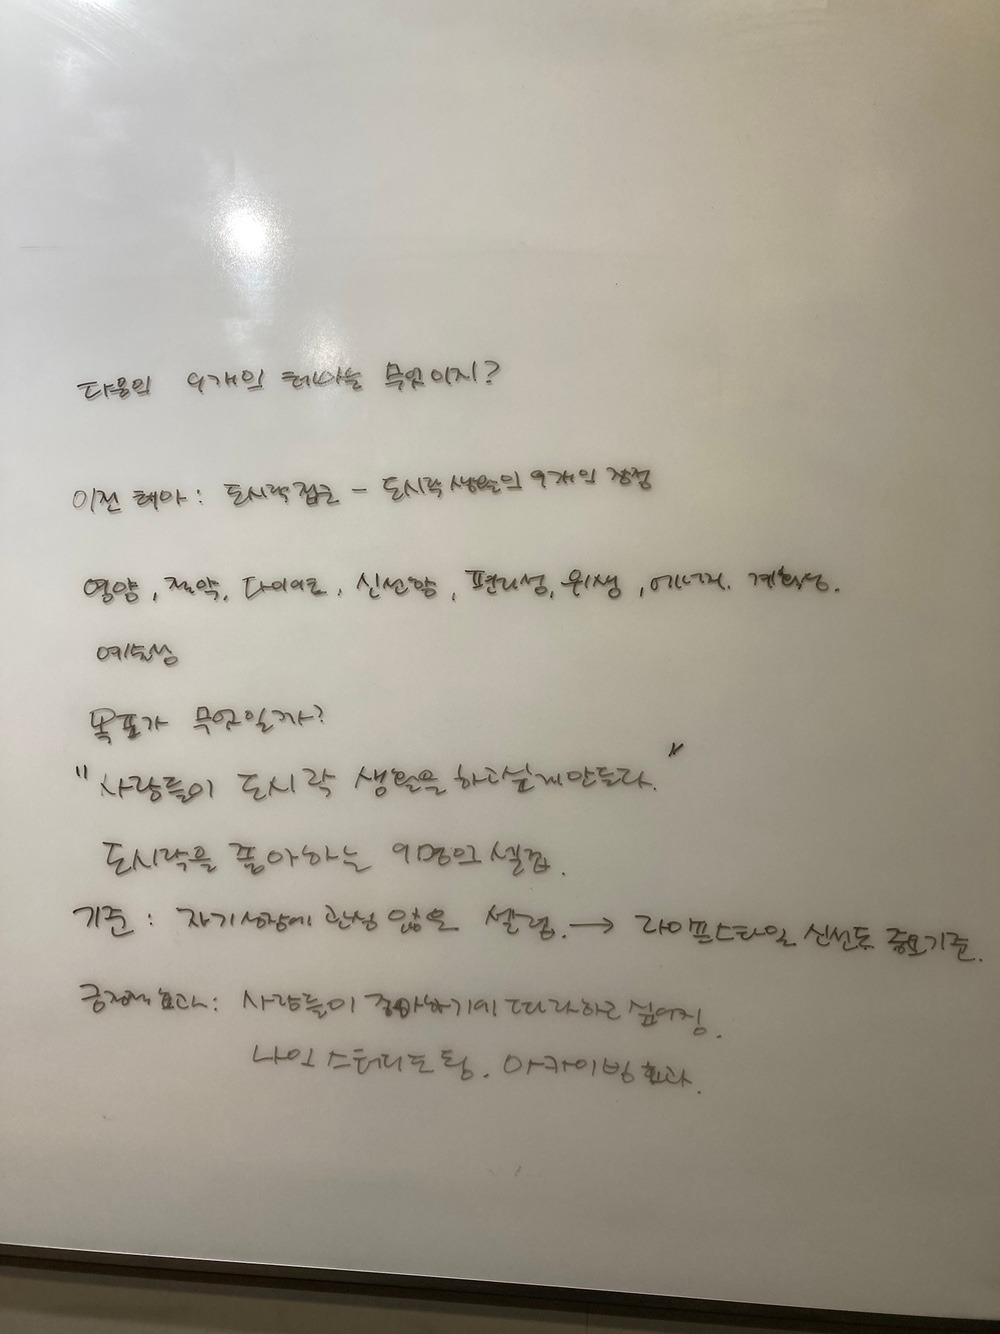 다음의 9개의 테마는 무엇이지?
이전 테마 : 도시락 접근 - 도시락 생활의 9개의 장점
영양, 절약, 다이어트, 신선함, 편리성, 위생, 에너지. 계획성.
예술성
목표가 무엇일까?
"사람들이 도시락 생활을 하고싶게만든다."
도시락을 좋아하는 9명의 셀럽.
기준 : 자기성장에 관심 많은 셀럽. → 라이프스타일 신선도 중요기준.
긍정적 효과 : 사람들이 좋아하기에 따라하고 싶어짐.
나인 스터디도 됨. 아카이빙 효과.